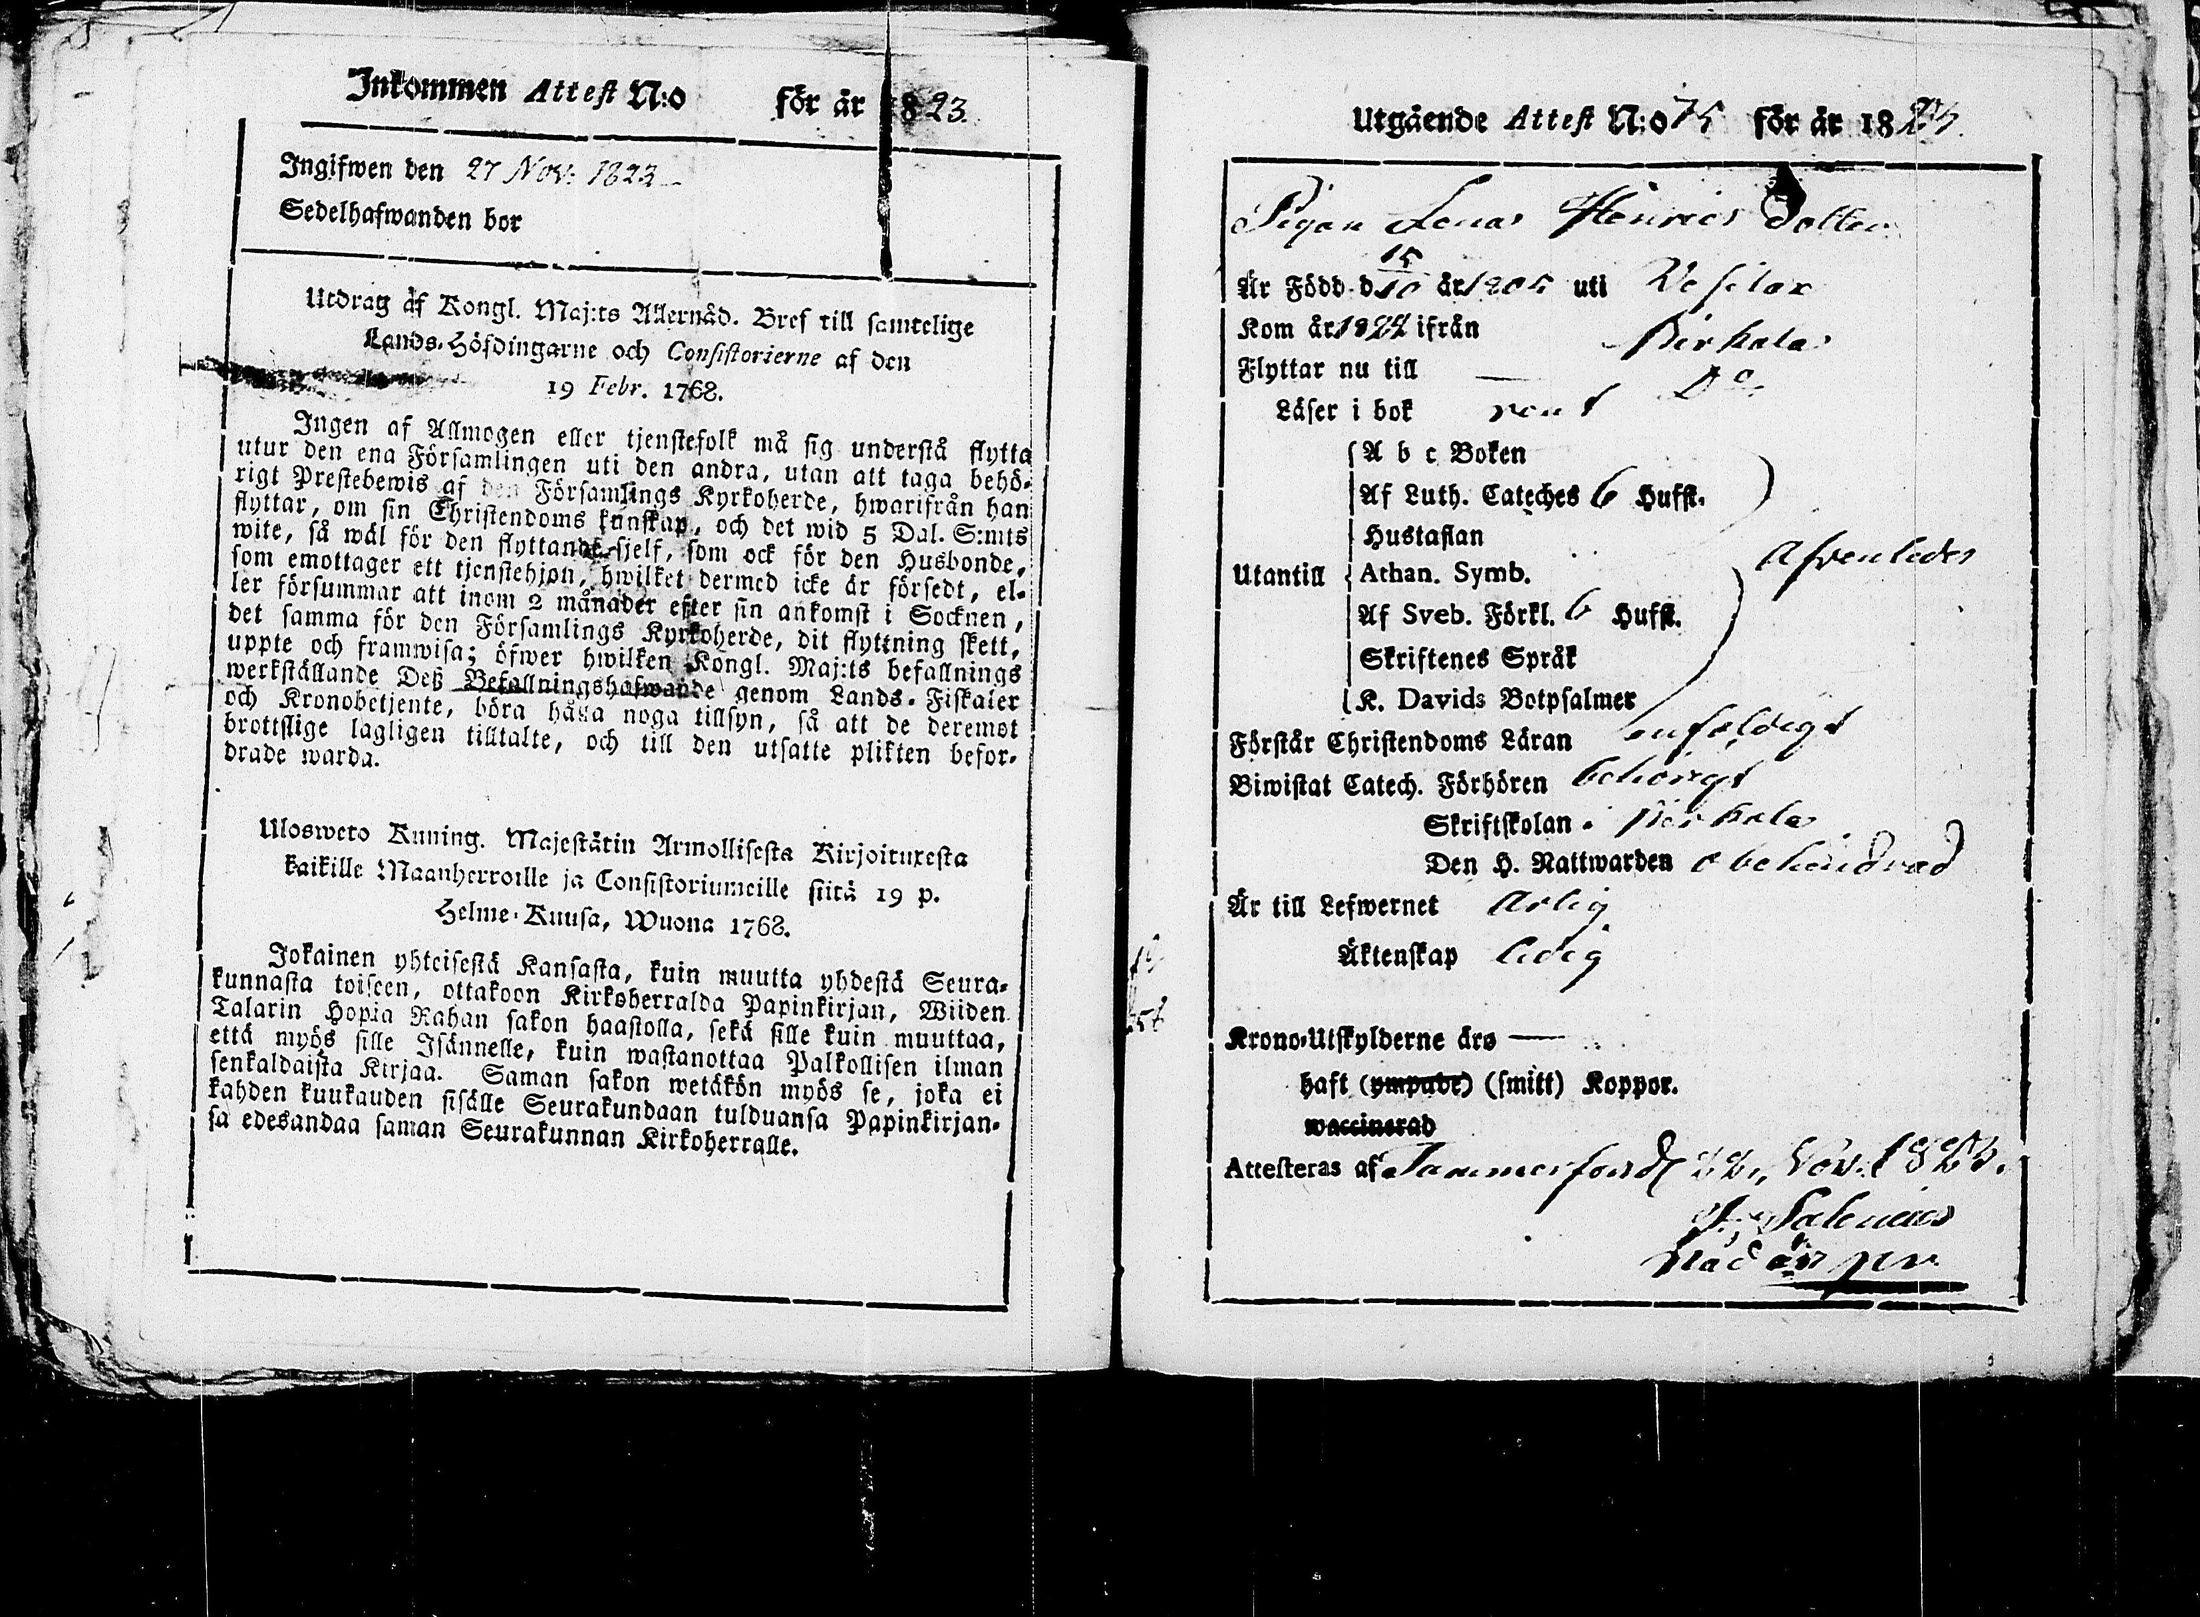 Inkommen Attest N:o för är 1823.
Ingifwen den 27 Nov: 1823
Sedelhafwanden bor
Utdrag af Kongl. Maj:ts Allernåd. Bref till samtelige
Lands-Höfdingarne och Consistorierne af den
19 Febr. 1768.
Ingen af Allmogen eller tjenstefolk må sig understå flytta
utur den ena Församlingen uti den andra, utan att taga behö-
rigt Prestebewis af den Församlings Kyrkoherde, hwarifrån han
flyttar, om sin Christendoms kunskap, och det wid 5 Dal. S:mts
wite, så wäl för den flyttande sjelf, som ock för den Husbonde,
som emottager ett tjenstehjon, hwilket dermed icke är försedt, el-
ler försummar att inom 2 månader efter sin ankomst i Socknen,
det samma för den Församlings Kyrkoherde, dit flyttning skett,
uppte och framwisa; öfwer hwilken Kongl. Maj:ts befallnings
werkställande Deß Befallningshafwande genom Lands-Fiskaler
och Kronobetjente, böra hålla noga tillsyn, så att de deremot
brottslige lagligen tilltalte, och till den utsatte plikten befor-
drade warda.
Ulosweto Kuning. Majestätin Armollisesta Kirjoituxesta
kaikille Maanherroille ja Consistoriumeille siitä 19 p.
Helme-Kuusa, Wuona 1768.
Jokainen yhteisestä Kansasta, kuin muutta yhdestä Seura-
kunnasta toiseen, ottakoon Kirkoherralda Papinkirjan, Wiiden
Talarin Hopia Rahan sakon haastolla, sekä sille kuin muuttaa,
että myös sille Isännelle, kuin wastanottaa Palkollisen ilman
senkaldaista Kirjaa. Saman sakon wetäkön myös se, joka ei
kahden kuukauden sisälle Seurakundaan tulduansa Papinkirjan-
sa edesandaa saman Seurakunnan Kirkoherralle.
Utgående Attest N:o 75 för är 1823.
Pigan Lena Henrics Dotter
Är Född d 15/10 år 1805 uti Vesilax
Kom år 1822 ifrån Birkala
Flyttar nu till — Do
Läser i bok rent
A b c Boken
Af Luth. Cateches 6 Hufst.
Hustaflan
Utantill Athan. Symb. Afvenledes
Af Sveb. Förkl. 6 Hufst.
Skriftenes Språk
K. Davids Botpsalmer
Förstår Christendoms Läran enfaldigt
Biwistat Catech. Förhören behörigt
Skriftskolan i Birkala
Den H. Nattwarden obehindrad
Är till Lefwernet ärlig
Äktenskap ledig
Krono-Utskylderne äro —
haft (ympade) (smitt) Koppor.
waccinerad
Attesteras af Tammerfors d 22 Nov. 1823.